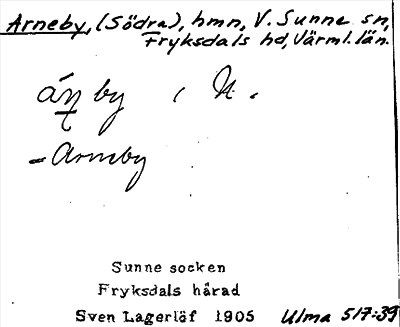 Arneby, (Södra), hmn, V. Sunne sn,
Fryksdals hd, Värml. län.
by
- Arneby
Sunne socken
Fryksdals härad
Sven Lagerlöf 1905 Ulma 517:39